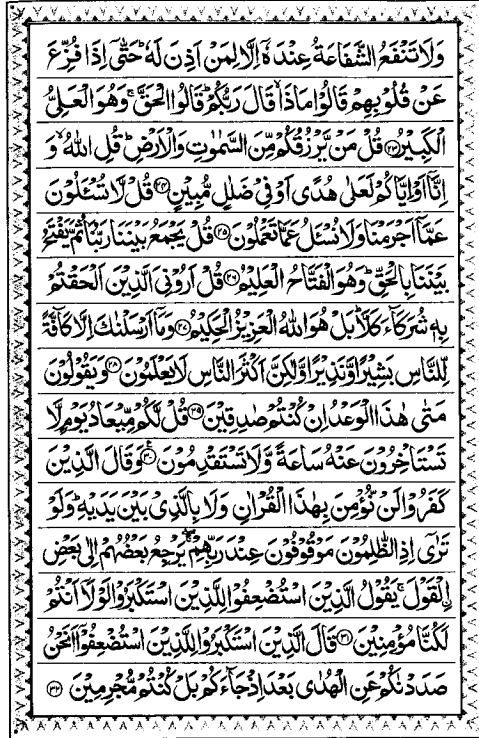 وَلَا تَنْفَعُ الشَّفَاعَةُ عِنْدَهٗۤ اِلَّا لِمَنْ اَذِنَ لَهٗ ؕ حَتّٰۤی اِذَا فُزِّعَ
عَنْ قُلُوْبِهِمْ قَالُوْا مَاذَا ۙ قَالَ رَبُّكُمْ ؕ قَالُوا الْحَقَّ ۚ وَهُوَ الْعَلِیُّ
الْكَبِیْرُ ﴿۲۳﴾ قُلْ مَنْ یَّرْزُقُكُمْ مِّنَ السَّمٰوٰتِ وَالْاَرْضِ ؕ قُلِ اللّٰهُ ۙ وَ
اِنَّاۤ اَوْ اِیَّاكُمْ لَعَلٰی هُدًی اَوْ فِیْ ضَلٰلٍ مُّبِیْنٍ ﴿۲۴﴾ قُلْ لَّا تُسْـَٔلُوْنَ
عَمَّاۤ اَجْرَمْنَا وَلَا نُسْـَٔلُ عَمَّا تَعْمَلُوْنَ ﴿۲۵﴾ قُلْ یَجْمَعُ بَیْنَنَا رَبُّنَا ثُمَّ یَفْتَحُ
بَیْنَنَا بِالْحَقِّ ؕ وَهُوَ الْفَتَّاحُ الْعَلِیْمُ ﴿۲۶﴾ قُلْ اَرُوْنِیَ الَّذِیْنَ اَلْحَقْتُمْ
بِهٖ شُرَكَآءَ كَلَّا ؕ بَلْ هُوَ اللّٰهُ الْعَزِیْزُ الْحَكِیْمُ ﴿۲۷﴾ وَمَاۤ اَرْسَلْنٰكَ اِلَّا كَآفَّةً
لِّلنَّاسِ بَشِیْرًا وَّنَذِیْرًا وَّلٰكِنَّ اَكْثَرَ النَّاسِ لَا یَعْلَمُوْنَ ﴿۲۸﴾ وَیَقُوْلُوْنَ
مَتٰی هٰذَا الْوَعْدُ اِنْ كُنْتُمْ صٰدِقِیْنَ ﴿۲۹﴾ قُلْ لَّكُمْ مِّیْعَادُ یَوْمٍ لَّا
تَسْتَاْخِرُوْنَ عَنْهُ سَاعَةً وَّلَا تَسْتَقْدِمُوْنَ ﴿۳۰﴾ وَقَالَ الَّذِیْنَ
كَفَرُوْا لَنْ نُّؤْمِنَ بِهٰذَا الْقُرْاٰنِ وَلَا بِالَّذِیْ بَیْنَ یَدَیْهِ ؕ وَلَوْ
تَرٰۤی اِذِ الظّٰلِمُوْنَ مَوْقُوْفُوْنَ عِنْدَ رَبِّهِمْ ۖۚ یَرْجِعُ بَعْضُهُمْ اِلٰی بَعْضِ
اِۨلْقَوْلَ ۚ یَقُوْلُ الَّذِیْنَ اسْتُضْعِفُوْا لِلَّذِیْنَ اسْتَكْبَرُوْا لَوْلَاۤ اَنْتُمْ
لَكُنَّا مُؤْمِنِیْنَ ﴿۳۱﴾ قَالَ الَّذِیْنَ اسْتَكْبَرُوْا لِلَّذِیْنَ اسْتُضْعِفُوْۤا اَنَحْنُ
صَدَدْنٰكُمْ عَنِ الْهُدٰی بَعْدَ اِذْ جَآءَكُمْ بَلْ كُنْتُمْ مُّجْرِمِیْنَ ﴿۳۲﴾